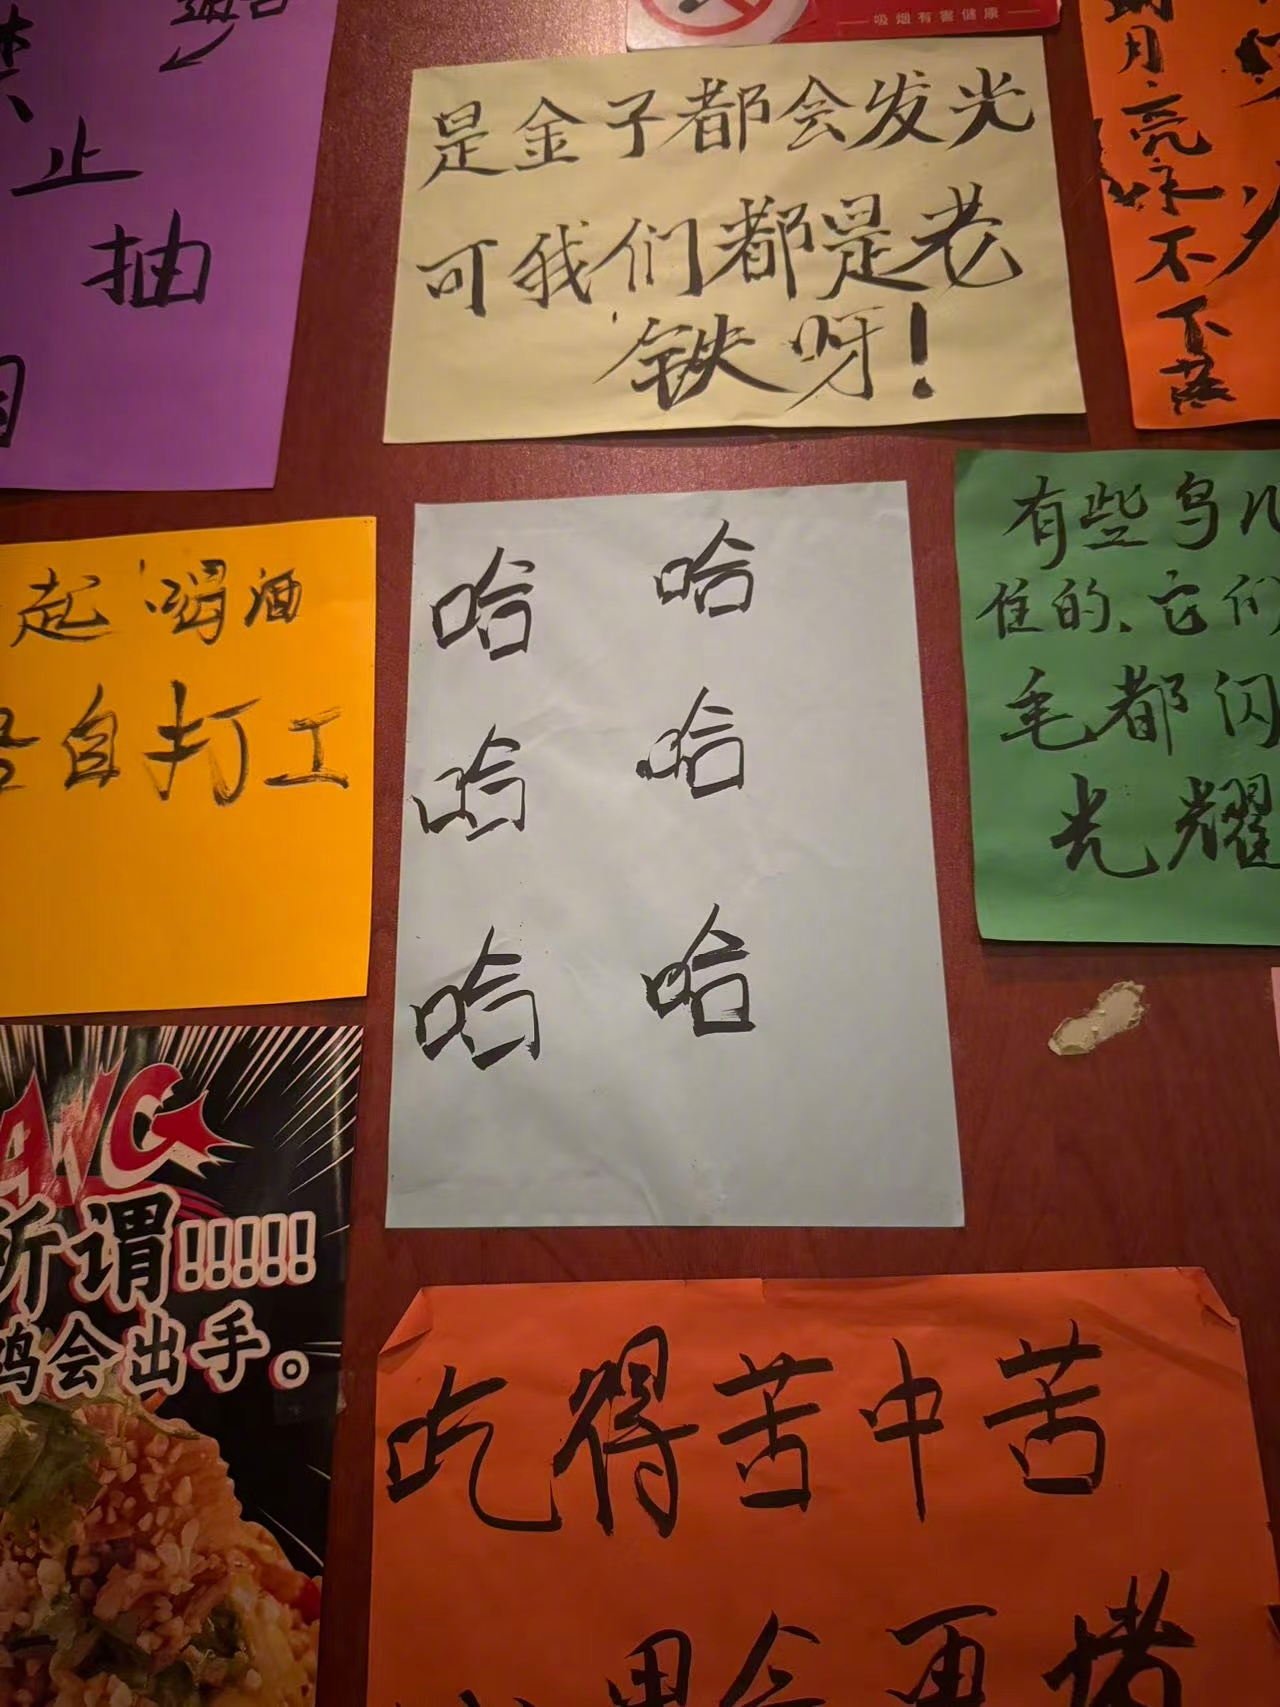 吸烟有害健康
禁
止
抽
是金子都会发光
可我们都是老
铁呀!
月
亮
不
下
落
起喝酒
自打工
哈 哈
哈 哈
哈 哈
有些鸟儿
住的、它们
毛都闪
光耀
所谓!!!!!
鸡会出手。
吃得苦中苦
再